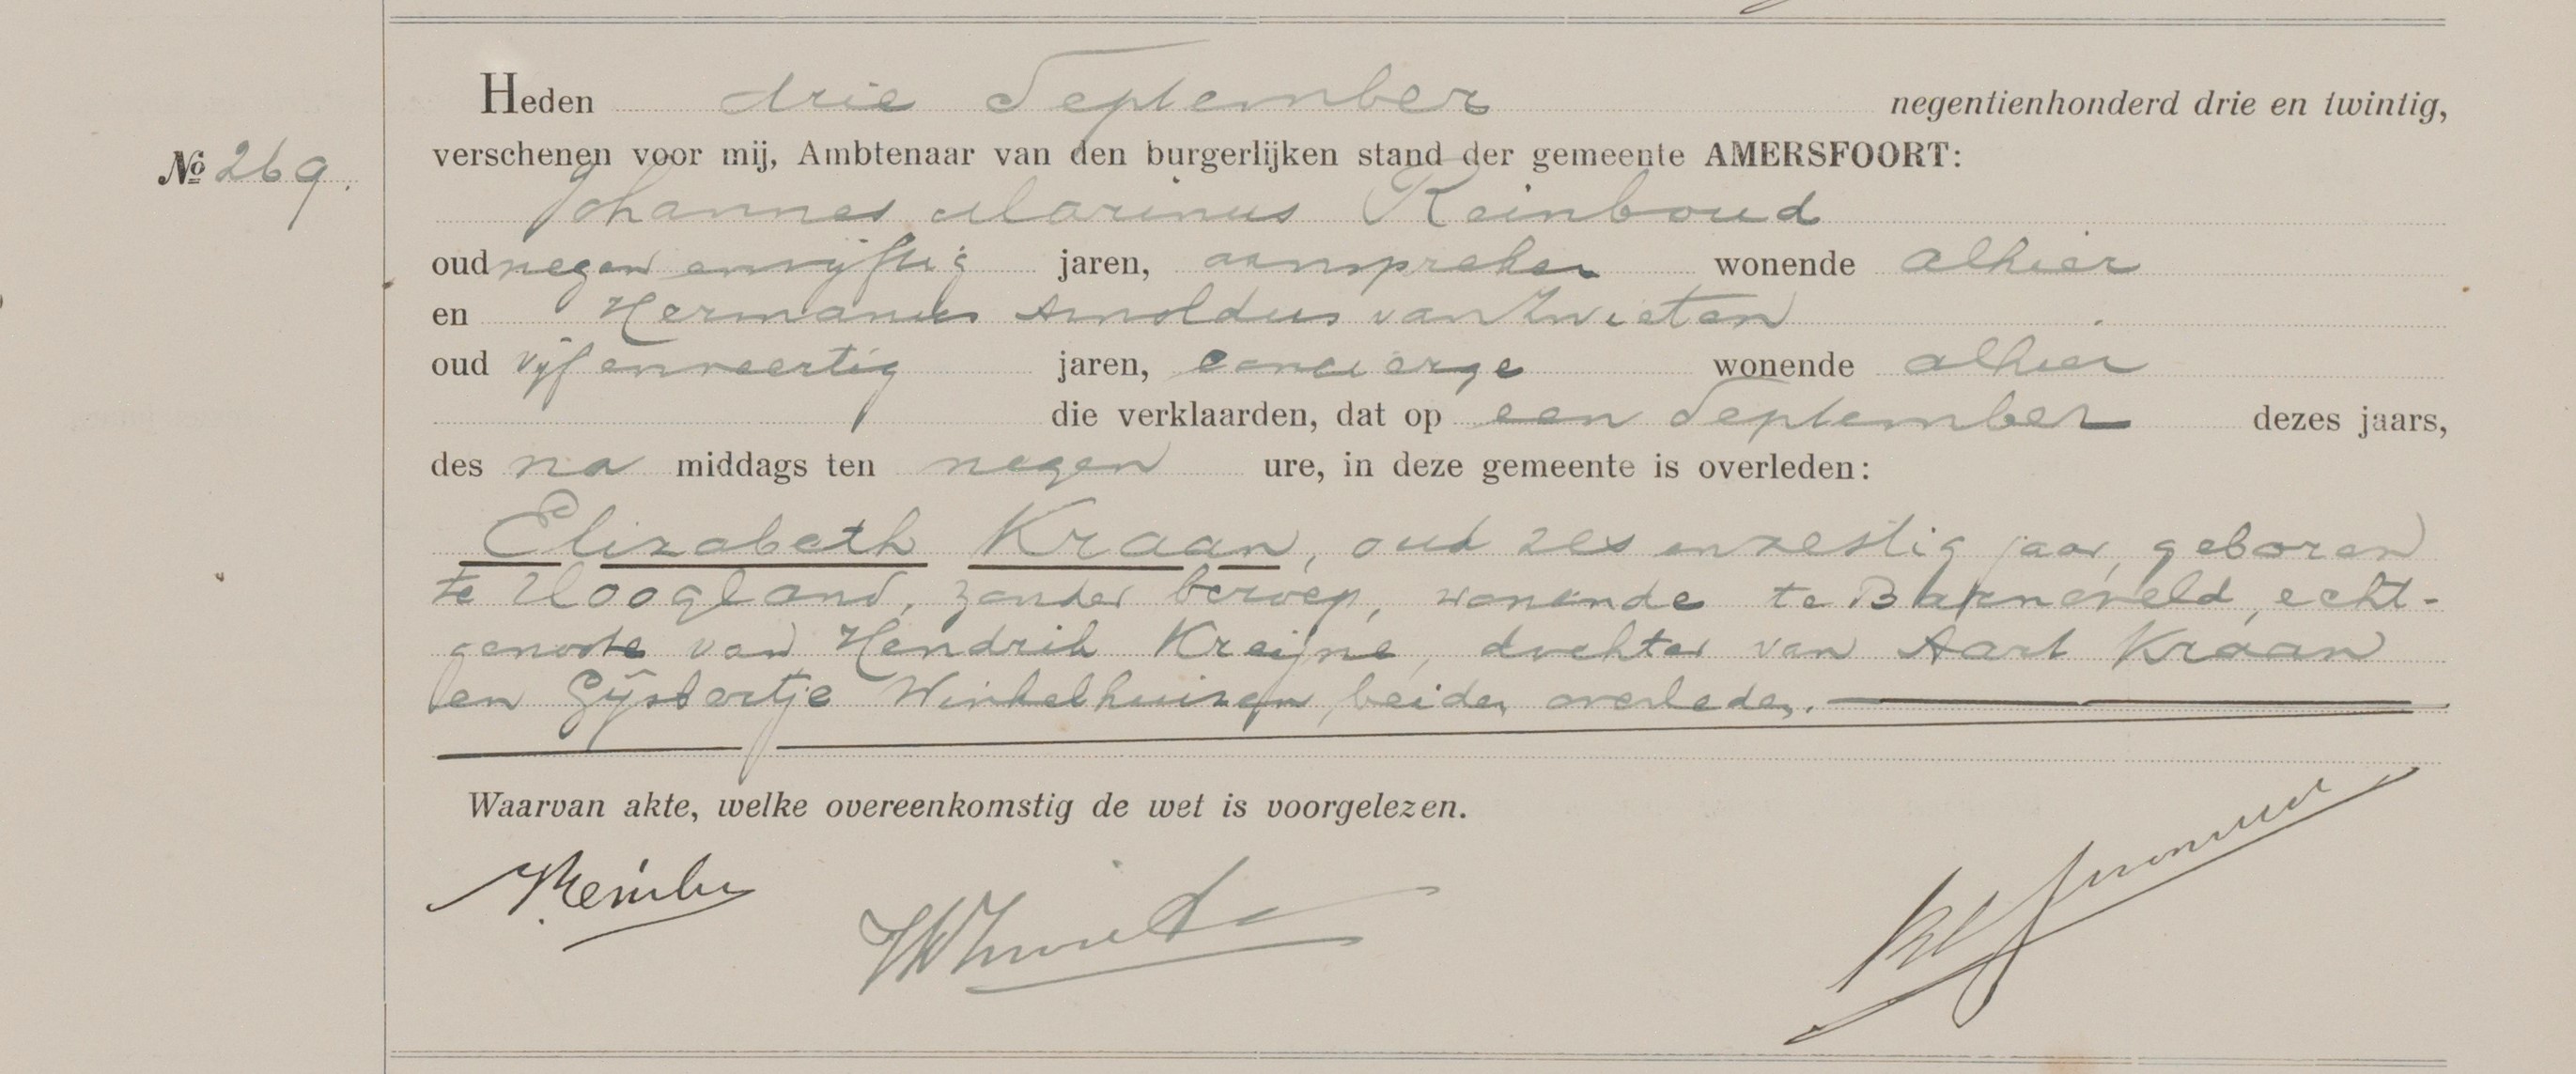 Heden drie September negentienhonderd drie en twintig,
verschenen voor mij, Ambtenaar van den burgerlijken stand der gemeente AMERSFOORT:
No 269.
Johannes Marinus Reinboud
oud negen envijftig jaren, aanspreker wonende alhier
en Hermanus Arnoldus van Zwieten
oud vijf enveertig jaren, concierge wonende alhier
die verklaarden, dat op een September dezes jaars,
des na middags ten negen ure, in deze gemeente is overleden:
Elizabeth Kraan, oud zes enzestig jaar, geboren
te Hoogland, zonder beroep, wonende te Barneveld, echt-
genoote van Hendrik Kreijne, dochter van Aart Kraan
en Gijsbertje Winkelhuizen, beiden overleden.
Waarvan akte, welke overeenkomstig de wet is voorgelezen.